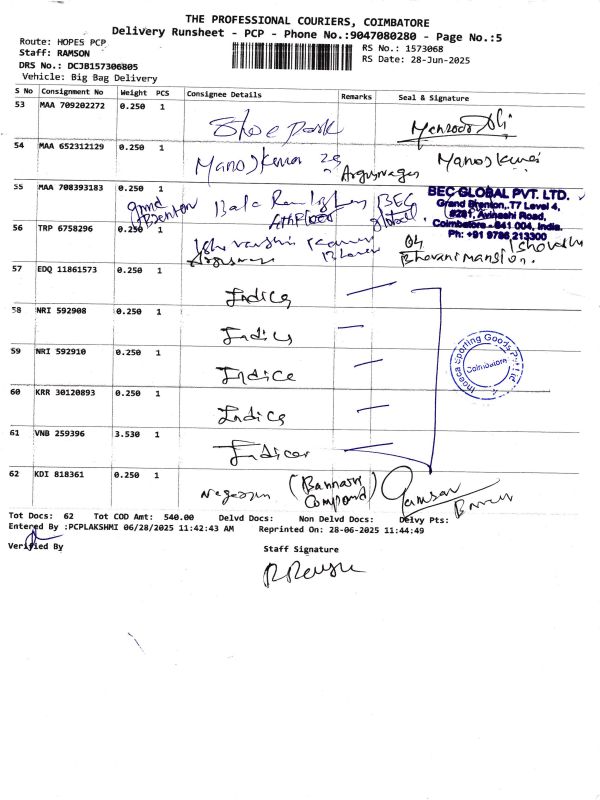 THE PROFESSIONAL COURIERS, COIMBATORE
Delivery Runsheet - PCP - Phone No.:9047080280 - Page No.:5
Route: HOPES PCP
Staff: RAMSON
RS No.: 1573068
DRS No.: DCJB157306805
RS Date: 28-Jun-2025
Vehicle: Big Bag Delivery
S No Consignment No Weight PCS Consignee Details Remarks Seal & Signature
53 MAA 709202272 0.250 1
Shoe park
54 MAA 652312129 0.250 1
Manojkumar
Manojkumar
55 MAA 708393183 0.250 1
Grand Brenton
Bala
4th floor
BEC global
BEC GLOBAL PVT. LTD.
Grand Brenton, T7 Level 4,
#281, Avinashi Road,
Coimbatore - 641 004, India.
Ph: +91 9786 213300
56 TRP 6758296 0.250 1
Kumar
04
Bhovani mansion.
57 EDQ 11861573 0.250 1
Indica
58 NRI 592908 0.250 1
Indica
59 NRI 592910 0.250 1
Indica
Coimbatore
60 KRR 30120893 0.250 1
Indica
61 VNB 259396 3.530 1
Indica
62 KDI 818361 0.250 1
(Bannari Compound)
Tot Docs: 62 Tot COD Amt: 540.00 Delvd Docs: Non Delvd Docs: Delvy Pts:
Entered By :PCPLAKSHMI 06/28/2025 11:42:43 AM Reprinted On: 28-06-2025 11:44:49
Verified By
Staff Signature